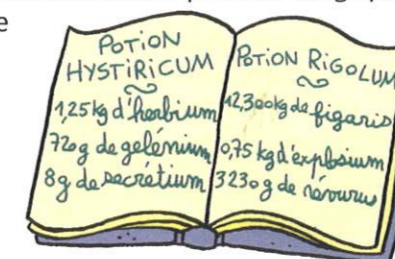 e
POTION
HYSTIRICUM
1,25kg d'herbium
720g de gelénium
8g de secrétium
POTION RIGOLUM
12,300kg de figaris
0,75 kg d'explosium
3230g de nevurus